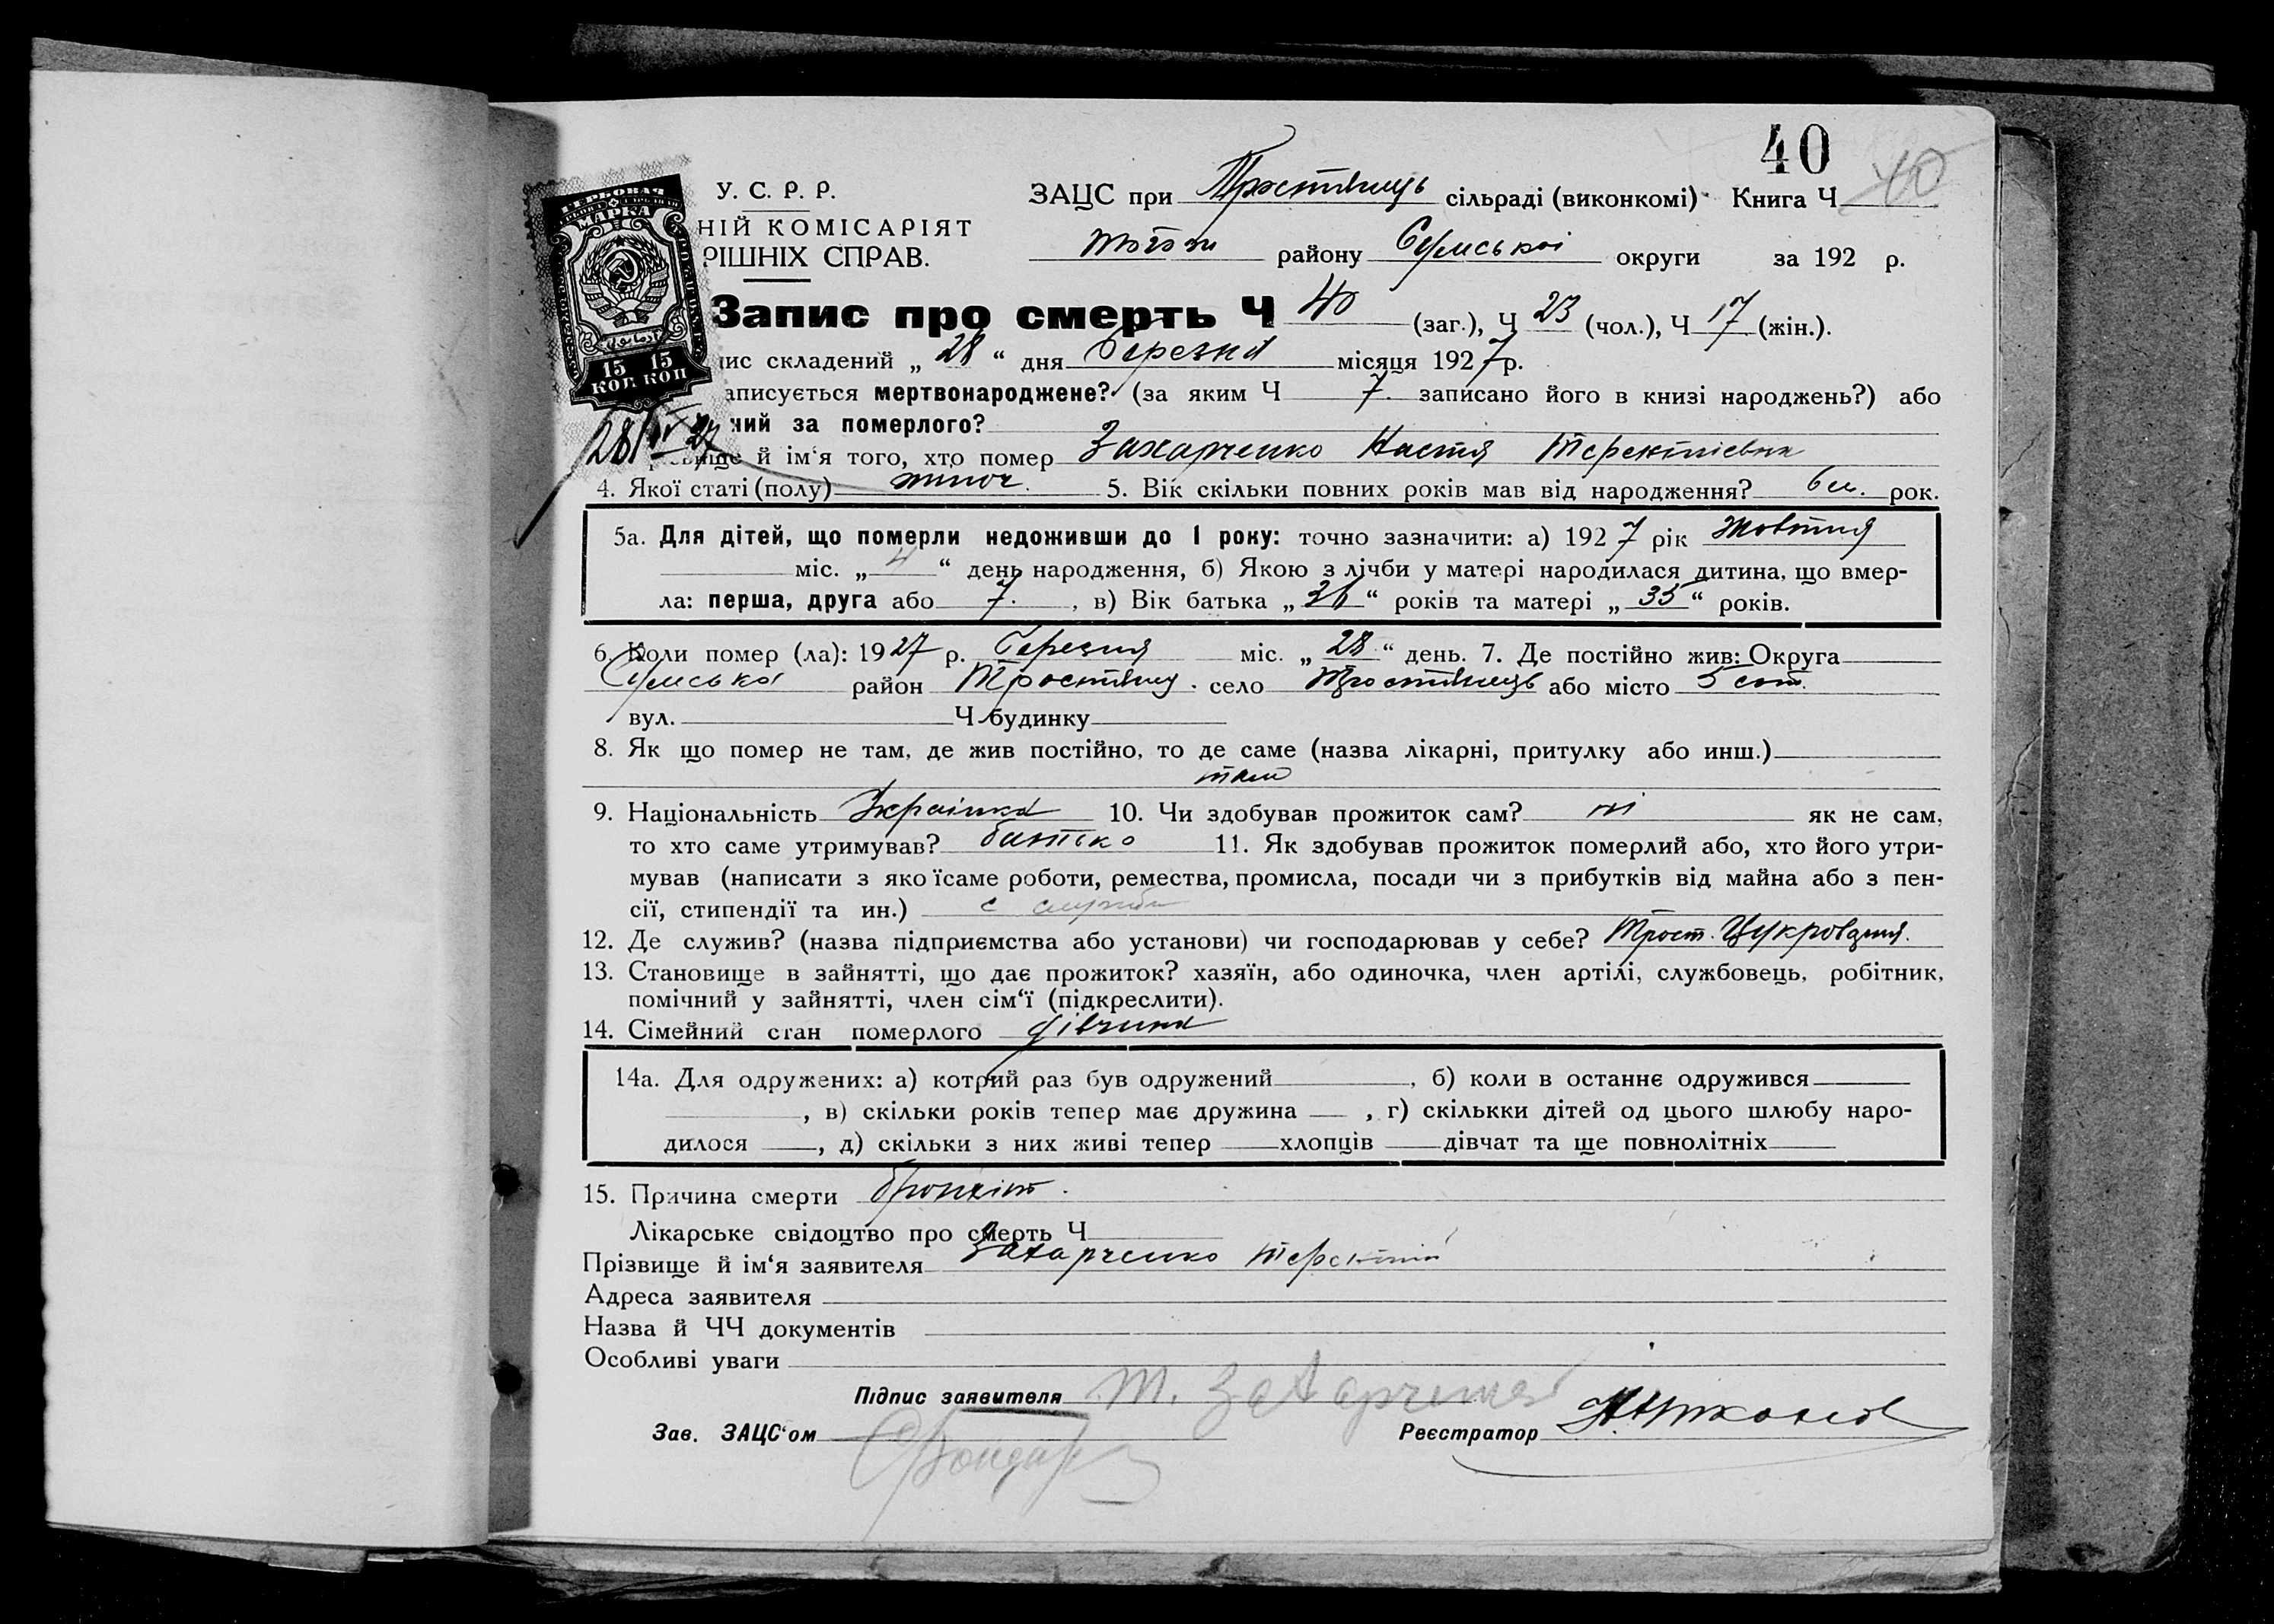 40
У. С. Р. Р.
НІЙ КОМІСАРІЯТ
РІШНІХ СПРАВ.
МАРКА
15 15
КОП КОП
ЗАЦС при Тростянець сільраді (виконкомі) Книга Ч 40
того ж району Сумської округи за 192 р.
Запис про смерть Ч 40 (заг.), Ч 23 (чол.), Ч 17 (жін.).
ис складений „ 28 “ дня березня місяця 1927 р.
аписується мертвонароджене? (за яким Ч 7. записано його в книзі народжень?) або
ний за померлого?
28/IV 27
й ім‘я того, хто помер Захарченко Настя Терентієвна
4. Якої статі (полу) жіноч. 5. Вік скільки повних років мав від народження? 6 м. рок.
5а. Для дітей, що померли недоживши до 1 року: точно зазначити: а) 1927 рік Жовтня
міс. „ 4 “ день народження, б) Якою з лічби у матері народилася дитина, що вмер-
ла: перша, друга або 7. , в) Вік батька „ 36 “ років та матері „ 35 “ років.
6. Коли помер (ла): 1927 р. березня міс. „ 28 “ день. 7. Де постійно жив: Округа
Сумська район Тростянец. село Тростянець або місто 5 сот.
вул. Ч будинку
8. Як що помер не там, де жив постійно, то де саме (назва лікарні, притулку або инш.)
там
9. Національність Українка 10. Чи здобував прожиток сам? ні як не сам,
то хто саме утримував? батько 11. Як здобував прожиток померлий або, хто його утри-
мував (написати з якоїсаме роботи, ремества, промисла, посади чи з прибутків від майна або з пен-
сії, стипендії та ин.) с служби
12. Де служив? (назва підприємства або установи) чи господарював у себе? Трост. Цукроварня.
13. Становище в зайнятті, що дає прожиток? хазяїн, або одиночка, член артілі, службовець, робітник,
помічний у зайнятті, член сім‘ї (підкреслити).
14. Сімейний стан померлого дівчина
14а. Для одружених: а) котрий раз був одружений , б) коли в останнє одружився
, в) скільки років тепер має дружина , г) скількки дітей од цього шлюбу наро-
дилося , д) скільки з них живі тепер хлопців дівчат та ще повнолітніх
15. Причина смерти бронхіт.
Лікарське свідоцтво про смерть Ч
Прізвище й ім‘я заявителя Захарченко Терентій
Адреса заявителя
Назва й ЧЧ документів
Особливі уваги
Підпис заявителя Т. Захарченко
Зав. ЗАЦС‘ом Бондар
Реєстратор